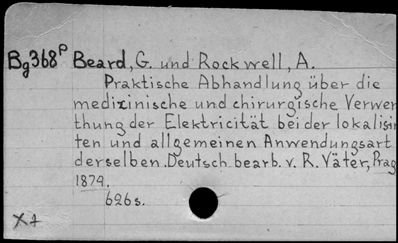 Bg368ᵖ Beard, G. und Rockwell, A.
Praktische Abhandlung über die
medizinische und chirurgische Verwer
thung der Elektricität bei der lokalisir
ten und allgemeinen Anwendungsart
derselben. Deutsch bearb. v. R. Väter, Prag
1874.
626 s.